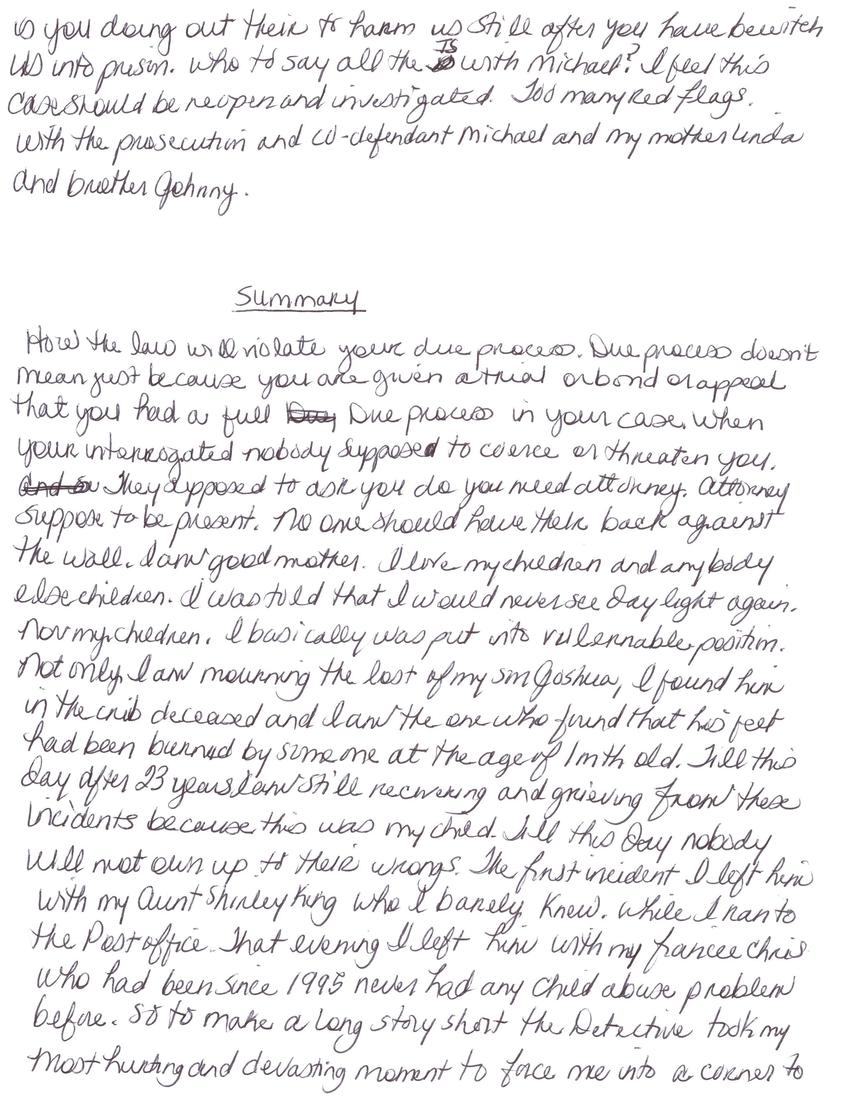 is you doing out their to harm us still after you have bewitch
us into prisin. who to say all the IS with Michael? I feel this
case should be reopen and investigated. Too many red flags.
with the prosecution and co-defendant Michael and my mother linda
and brother Johnny.
Summary
How the law will violate your due process. Due process doesn't
mean just because you are given a trial or bond or appeal
that you had a full Due process in your case. When
your interrogated nobody supposed to coerce or threaten you.
They sipposed to ask you do you need attorney. Attorney
suppose to be present. No one should have their back against
the wall. I am good mother. I love my children and anybody
else children. I was told that I would never see day light again.
Nor my children. I basically was put into vulernable position.
Not only I am mourning the lost of my son Joshua, I found him
in the crib deceased and I am the one who found that his feet
had been burned by someone at the age of 1 mth old. Till this
day after 23 years I am still recovering and grieving from these
incidents because this was my child. Till this day nobody
will not own up to their wrongs. The first incident I left him
with my Aunt Shirley King who I barely knew. while I ran to
the Post office. That evening I left him with my francee Chris
who had been since 1995 never had any child abuse problem
before. So to make a long story short the Detective took my
most hurting and devasting moment to force me into a corner to